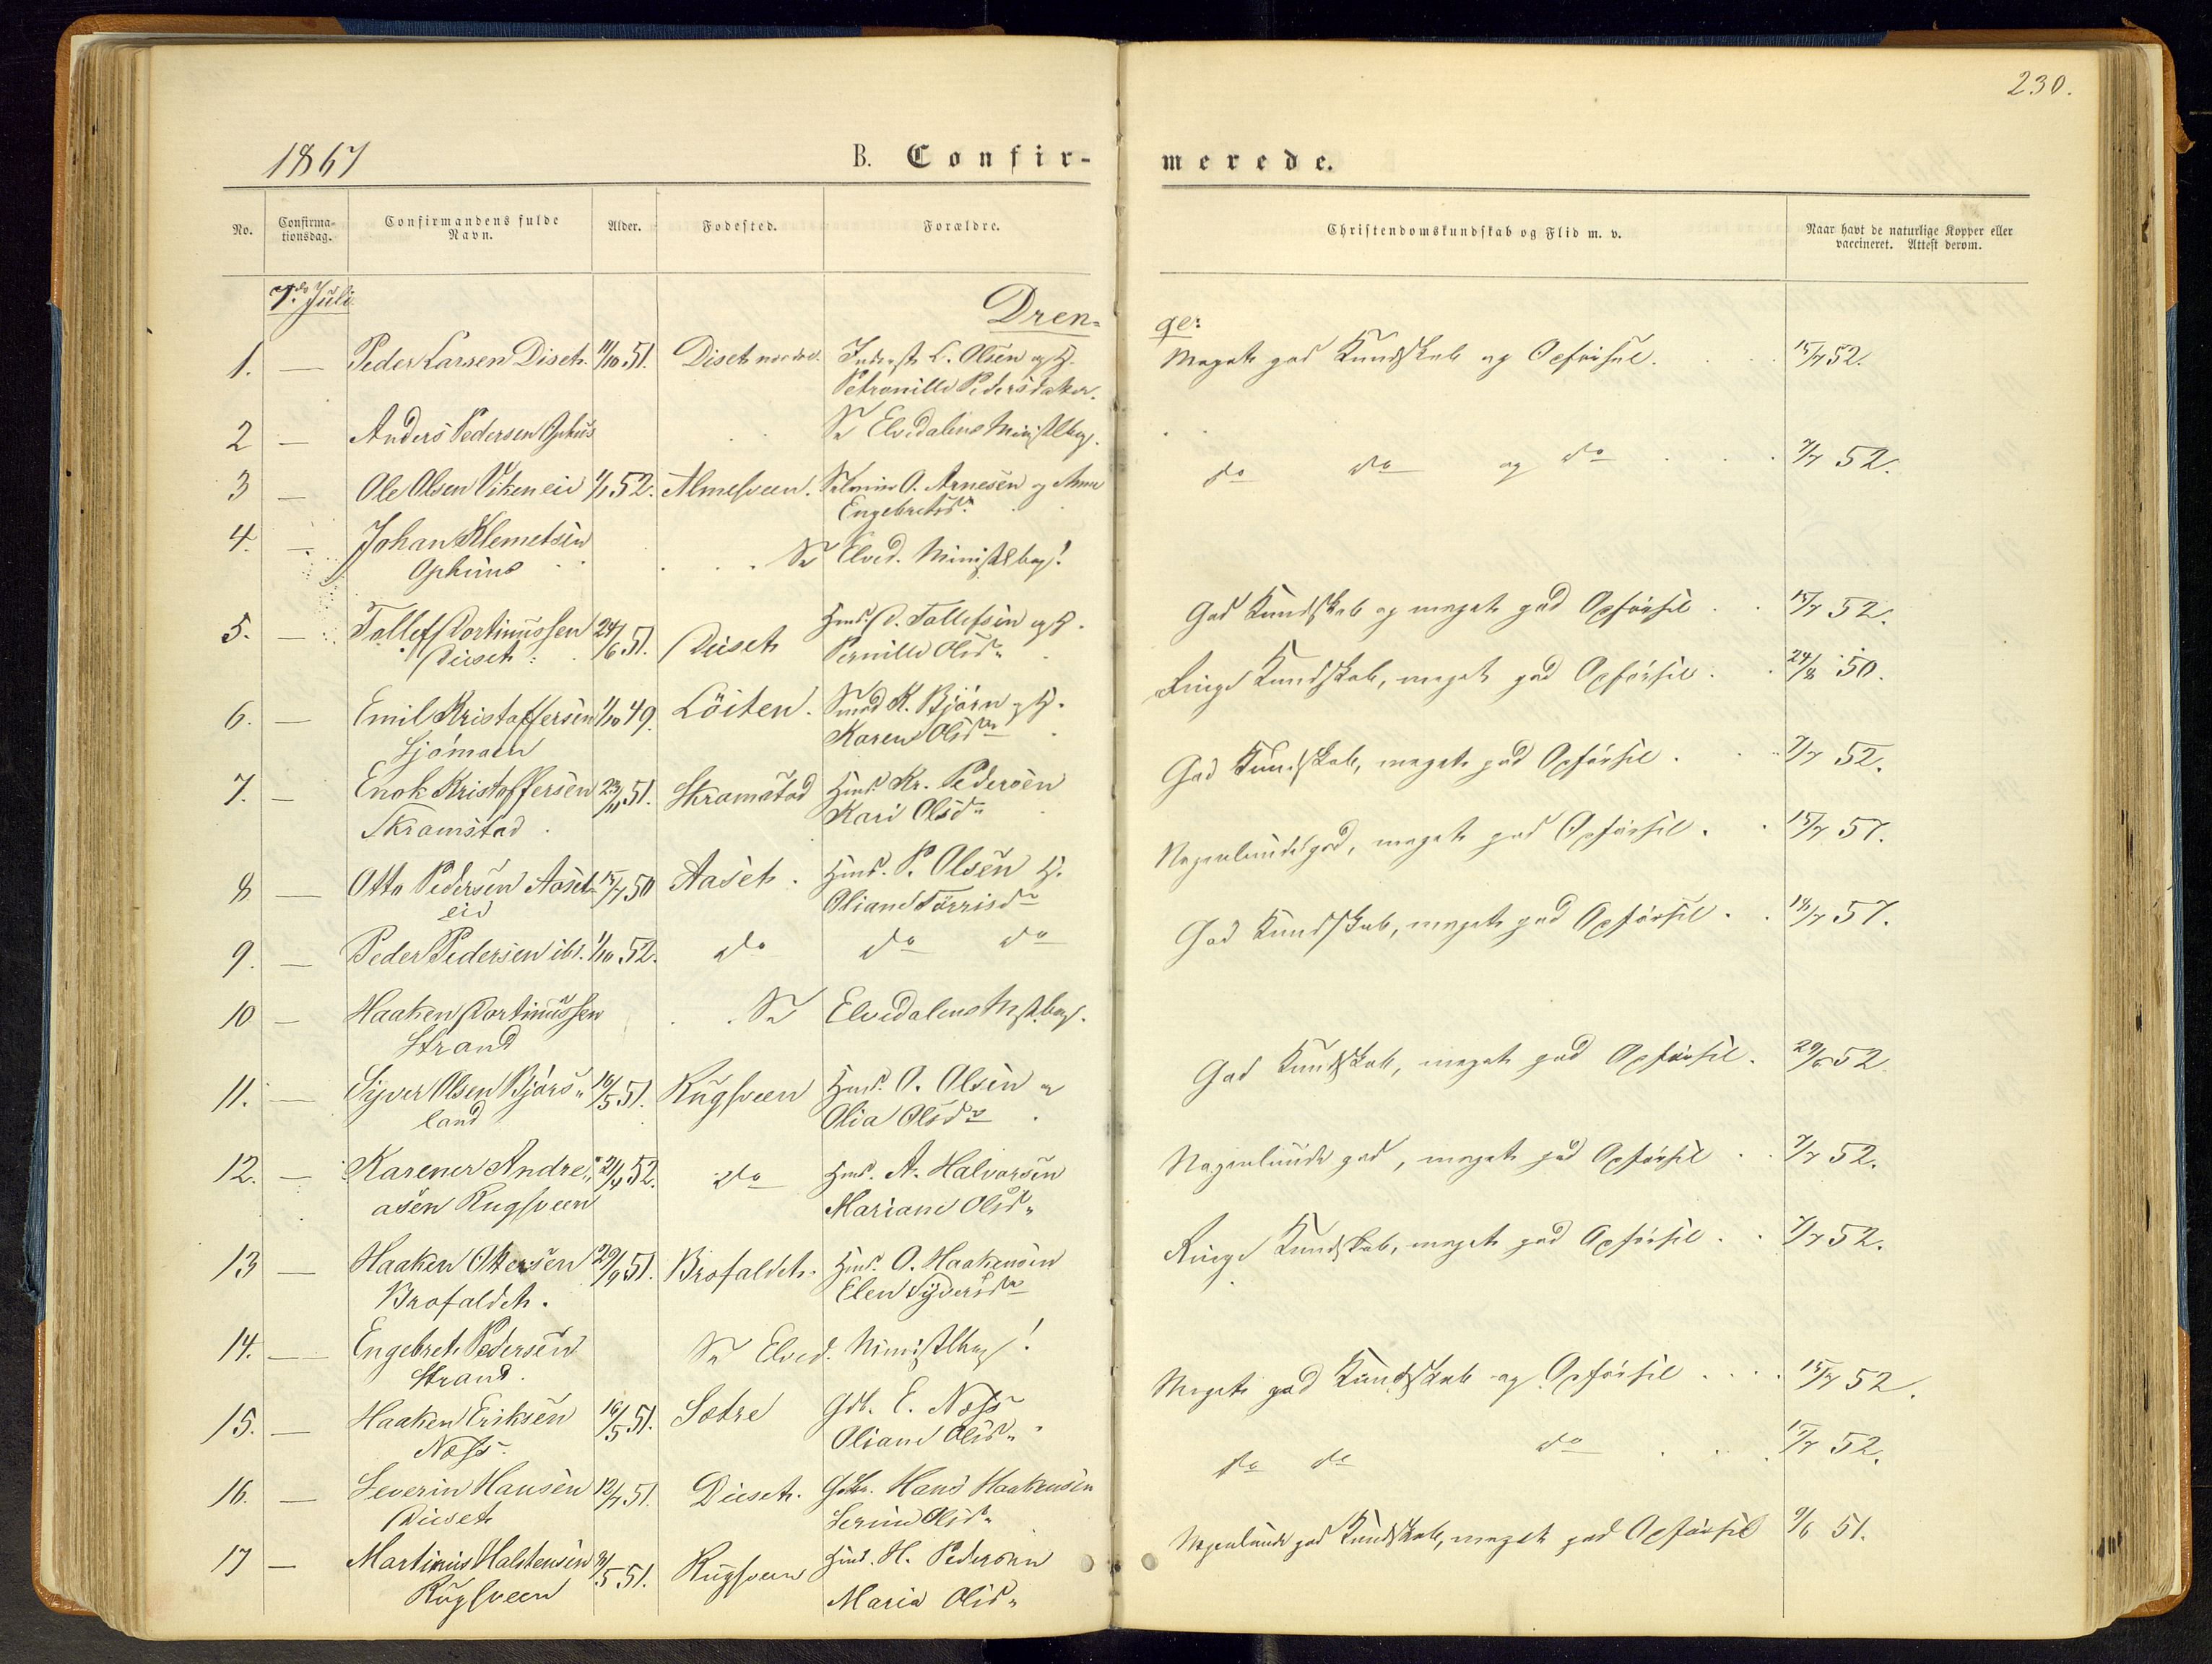 230.
1867 B. Confir- merede.
No. Confirma- tionsdag. Confirmandens fulde Navn. Alder. Fødested. Forældre. Christendomskundskab og Flid m. v. Naar havt de naturlige Kopper eller vaccineret. Attest derom.
7de Juli
Dren- ge:
1. — Peder Larsen Diset. 11/10 51. Diset nordre. Inderst L. Olsen og H. Meget god Kundskab og Opførsel. 15/7 52.
Petronille Pedersdatter.
2 — Anders Pedersen Ophus Se Elvedalens Ministlbog.
3 — Ole Olsen Viken eie 1/1 52. Almesveen. O. Arnesen og Anne do do og do 7/7 52.
Engebretsd.
4. — Johan Klemetsen
Ophuus Se Elved. Ministlbog!
5. — Tollef Portinussen 24/6 51. Diiset Hmd. P. Tollefsen og H. God Kundskab og meget god Opførsel 15/7 52.
Diiset: Pernille Olsd.
6. — Emil Kristoffersen 1/10 49. Löiten. Smed K. Björn og H. Ringe Kundskab, meget god Opførsel. 24/8 50.
Sjömoen Karen Olsdr
7. — Enok Kristoffersen 23/11 51. Skramstad Hmd. Kr. Pedersen God Kundskab, meget god Opførsel. 7/7 52.
Skramstad. Kari Olsd.
8 — Otto Pedersen Aaset 15/7 50 Aaset. Hmd. P. Olsen H. Nogenlunde god, meget god Opførsel. 15/7 57.
eie Oliane Torrisdr
9. — Peder Pedersen ibd. 1/10 52. do do do God Kundskab, meget god Opførsel. 14/7 57.
10 — Haaken Portinussen Se Elvedalens Mstbog.
Strand
11. — Syver Olsen Björs- 16/5 51. Rugsveen Hmd. O. Olsen og God Kundskab, meget god Opførsel. 29/6 52
land Olia Olsdr
12. — Karener Andre- 21/4 52. do Hmd. A. Halvorsen Nogenlunde god, meget god Opførsel 7/7 52.
asen Rugsveen Mariane Olsd.
13 — Haaken Ottersen 29/9 51. Brofaldet. Hmd. O. Haakensen Ringe Kundskab, meget god Opførsel. 7/7 52.
Brofaldet. Elen Syversdr
14. — Engebret Pedersen Se Elved. Ministlbog!
Strand.
15. — Haaken Eriksen 16/5 51. Sætre Gdb. E. Næss Meget god Kundskab og Opførsel 15/7 52.
Næss. Oliane Olsd.
16. — Severin Hansen 12/7 51. Diiset. Gdbr. Hans Haakensen do do do 15/7 52.
Diiset Serine Olsd.
17 — Martinus Halstensen 3/5 51. Rugsveen Hmd. H. Pedersen Nogenlunde god Kundskab, meget god Opførsel 9/6 51.
Rugsveen Maria Olsd.